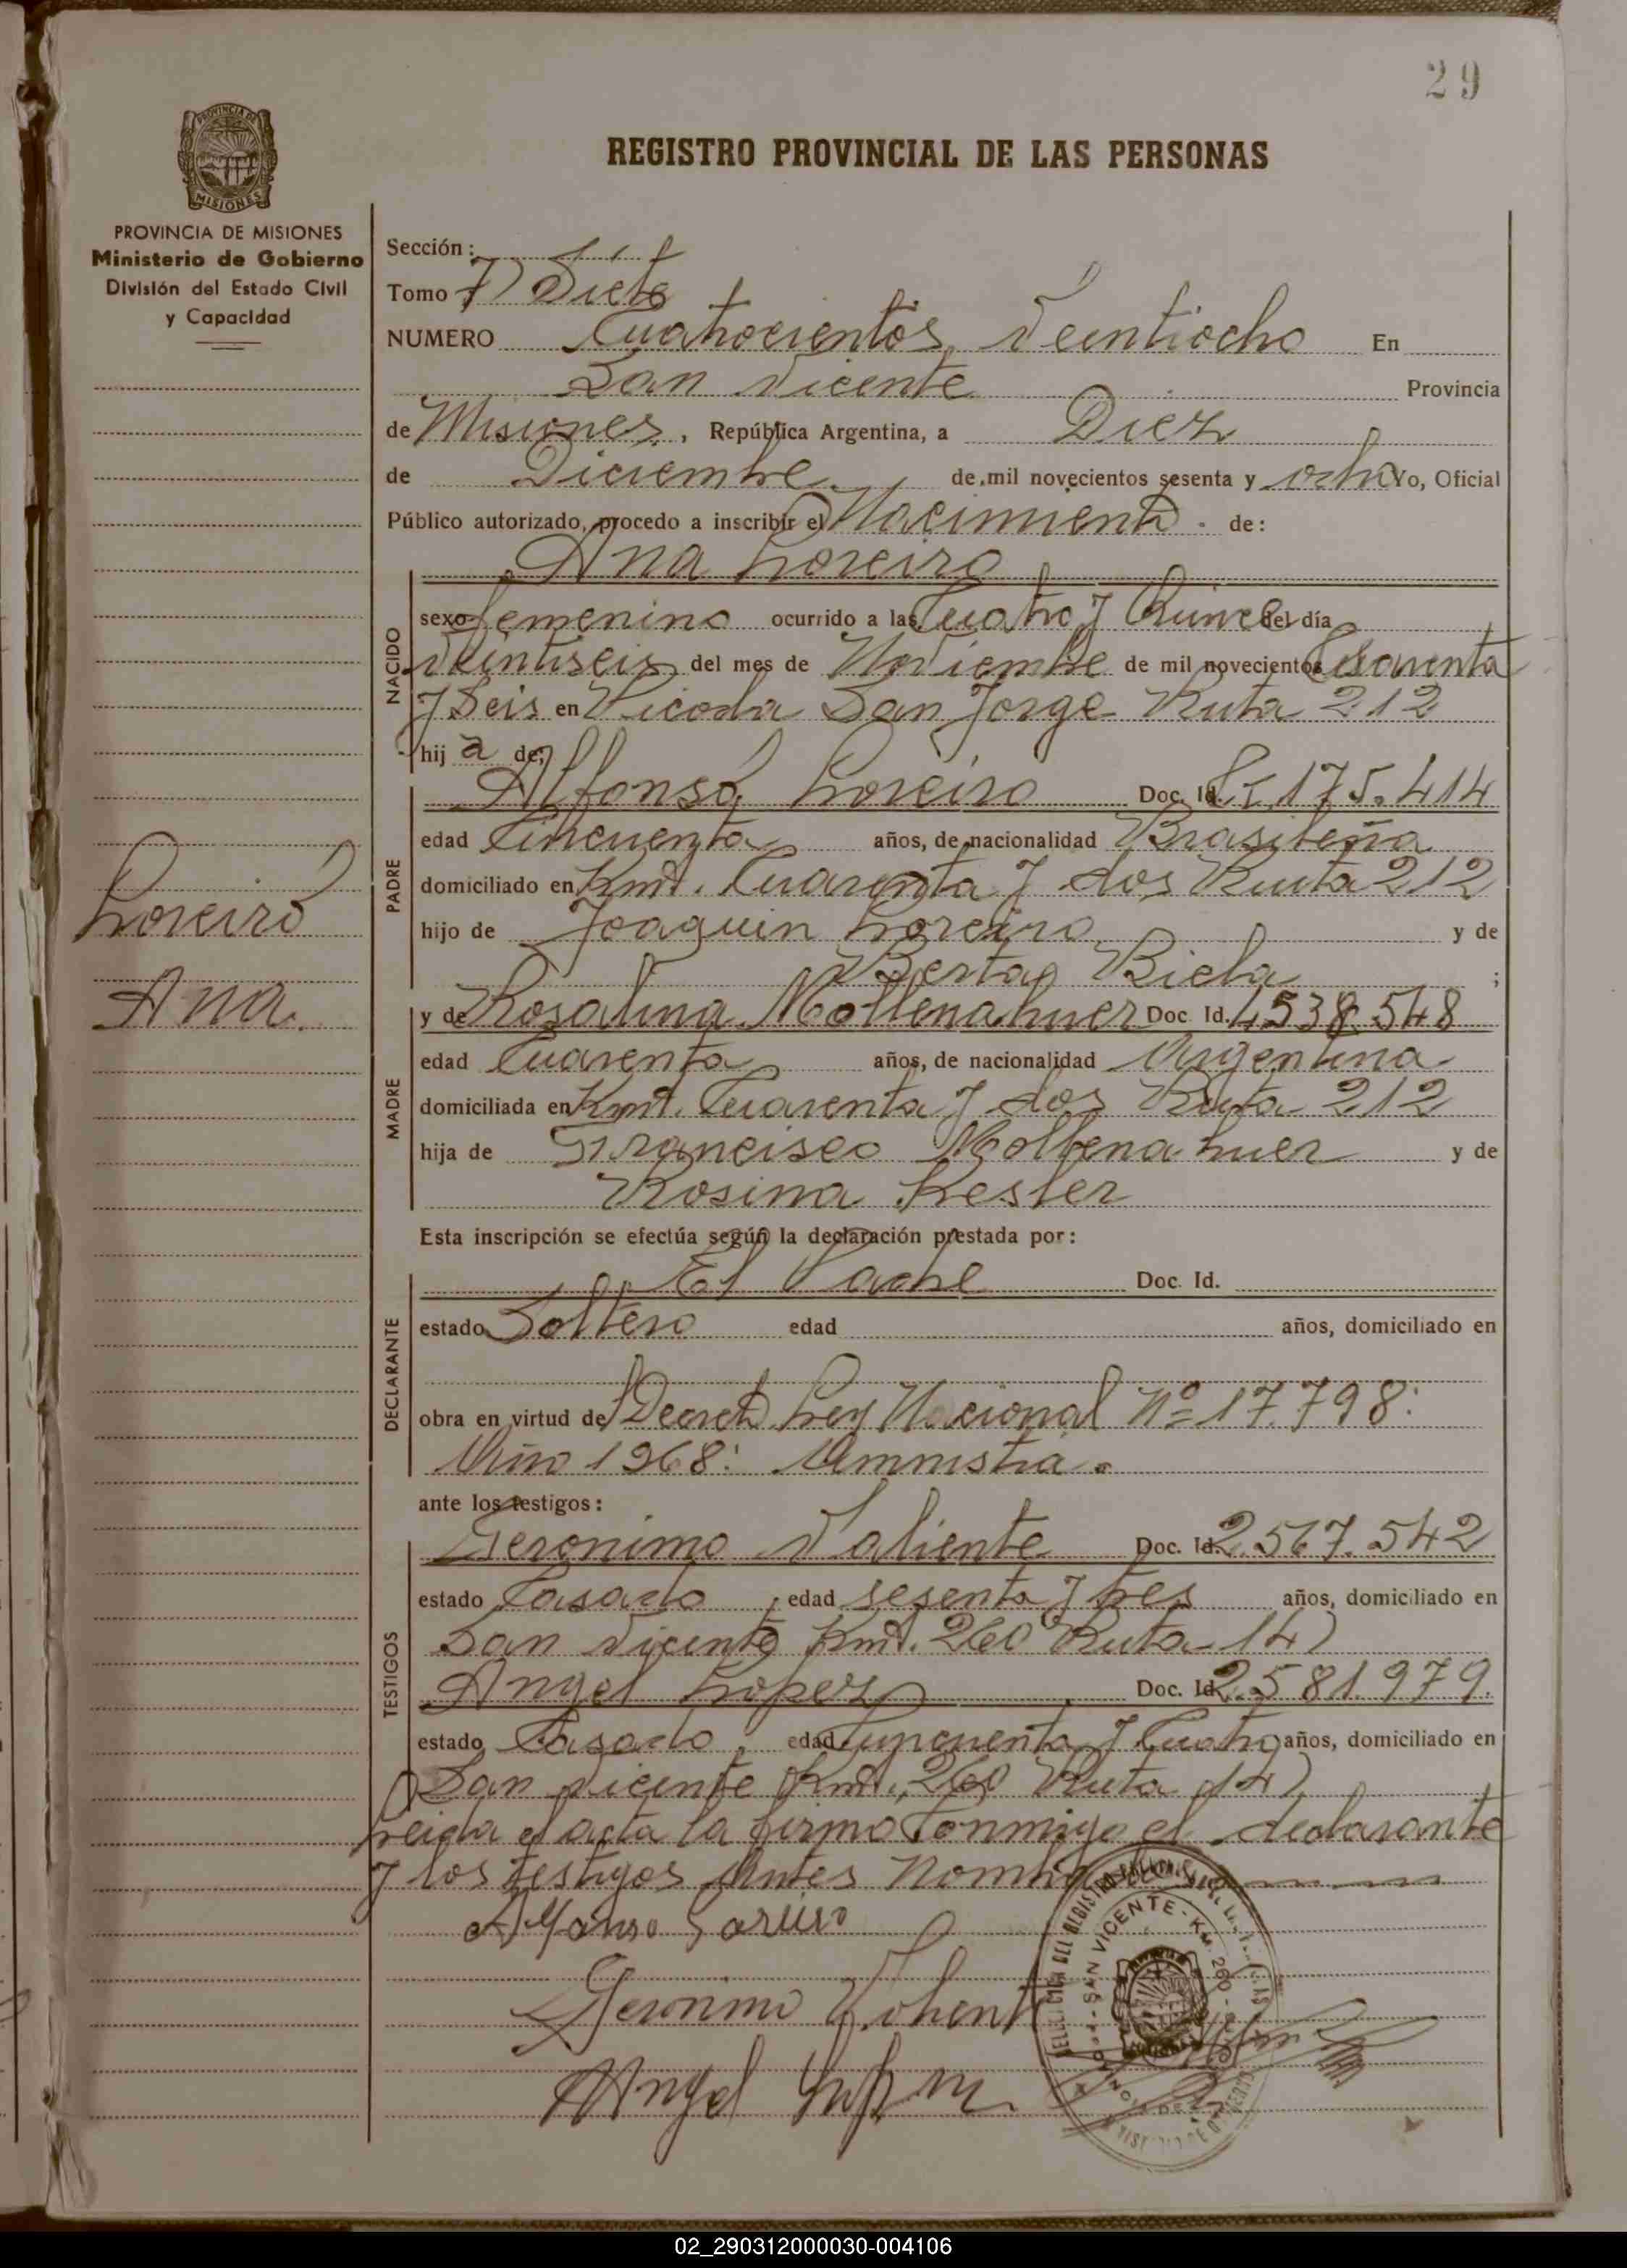 29
REGISTRO PROVINCIAL DE LAS PERSONAS
PROVINCIA DE MISIONES
MISIONES
PROVINCIA DE MISIONES
Ministerio de Gobierno
División del Estado Civil
y Capacidad
Loreiro
Ana.
Sección:
Tomo 7) Siete
NUMERO Cuatrocientos Veintiocho En
San Vicente Provincia
de Misiones, República Argentina, a Diez
de Diciembre de mil novecientos sesenta y ocho Yo, Oficial
Público autorizado, procedo a inscribir el Nacimiento. de:
Ana Loreiro
NACIDO
sexo femenino ocurrido a las Cuatro y Quince del día
Veintiseis del mes de Noviembre de mil novecientos
y Seis en Picada San Jorge Ruta 212
hij a de;
PADRE
Alfonso Loreiro Doc. Id. 175.414
edad Cincuenta años, de nacionalidad Brasileña
domiciliado en Kmt. Cuarenta y dos Ruta 212
hijo de Joaquin Loreiro y de
Berta Biela ;
MADRE
y de Rosalina Mollenahuer Doc. Id. 4538548
edad Cuarenta años, de nacionalidad Argentina
domiciliada en Kmt. Cuarenta y dos Ruta 212
hija de Francisco Mollenahuer y de
Rosina Kesler
Esta inscripción se efectúa según la declaración prestada por:
DECLARANTE
El Padre Doc. Id.
estado Soltero edad años, domiciliado en
obra en virtud de Decreto Ley Nacional Nº 17.798:
Año 1968: Amnistia.
ante los testigos:
TESTIGOS
Geronimo Valiente Doc. Id. 2.567.542
estado Casado, edad sesenta y tres años, domiciliado en
San Vicente Kmt. 260 Ruta 14)
Angel Lopez Doc. Id. 2.581.979.
estado Casado, edad Cincuenta y Cuatro años, domiciliado en
San Vicente Kmt. 260 Ruta 14)
Leida el acta la firma Conmigo el declarante
y los testigos Antes Nombrados
Alfonso
Geronimo Valiente
Angel
SAN VICENTE - Km. 260
02_290312000030-004106